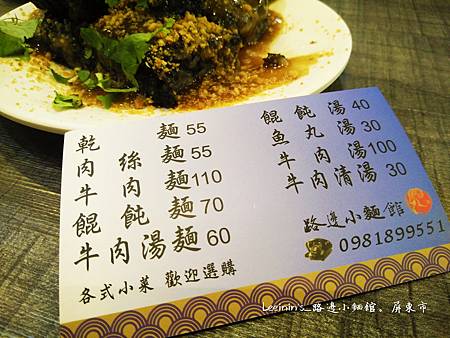 乾麵 55
肉絲麵 55
牛肉麵110
餛飩麵 70
牛肉湯麵 60
各式小菜 歡迎選購
餛飩湯 40
魚丸湯 30
牛肉湯100
牛肉清湯 30
路邊小麵館
0981899551
Leeinin's_路邊小麵館、屏東市